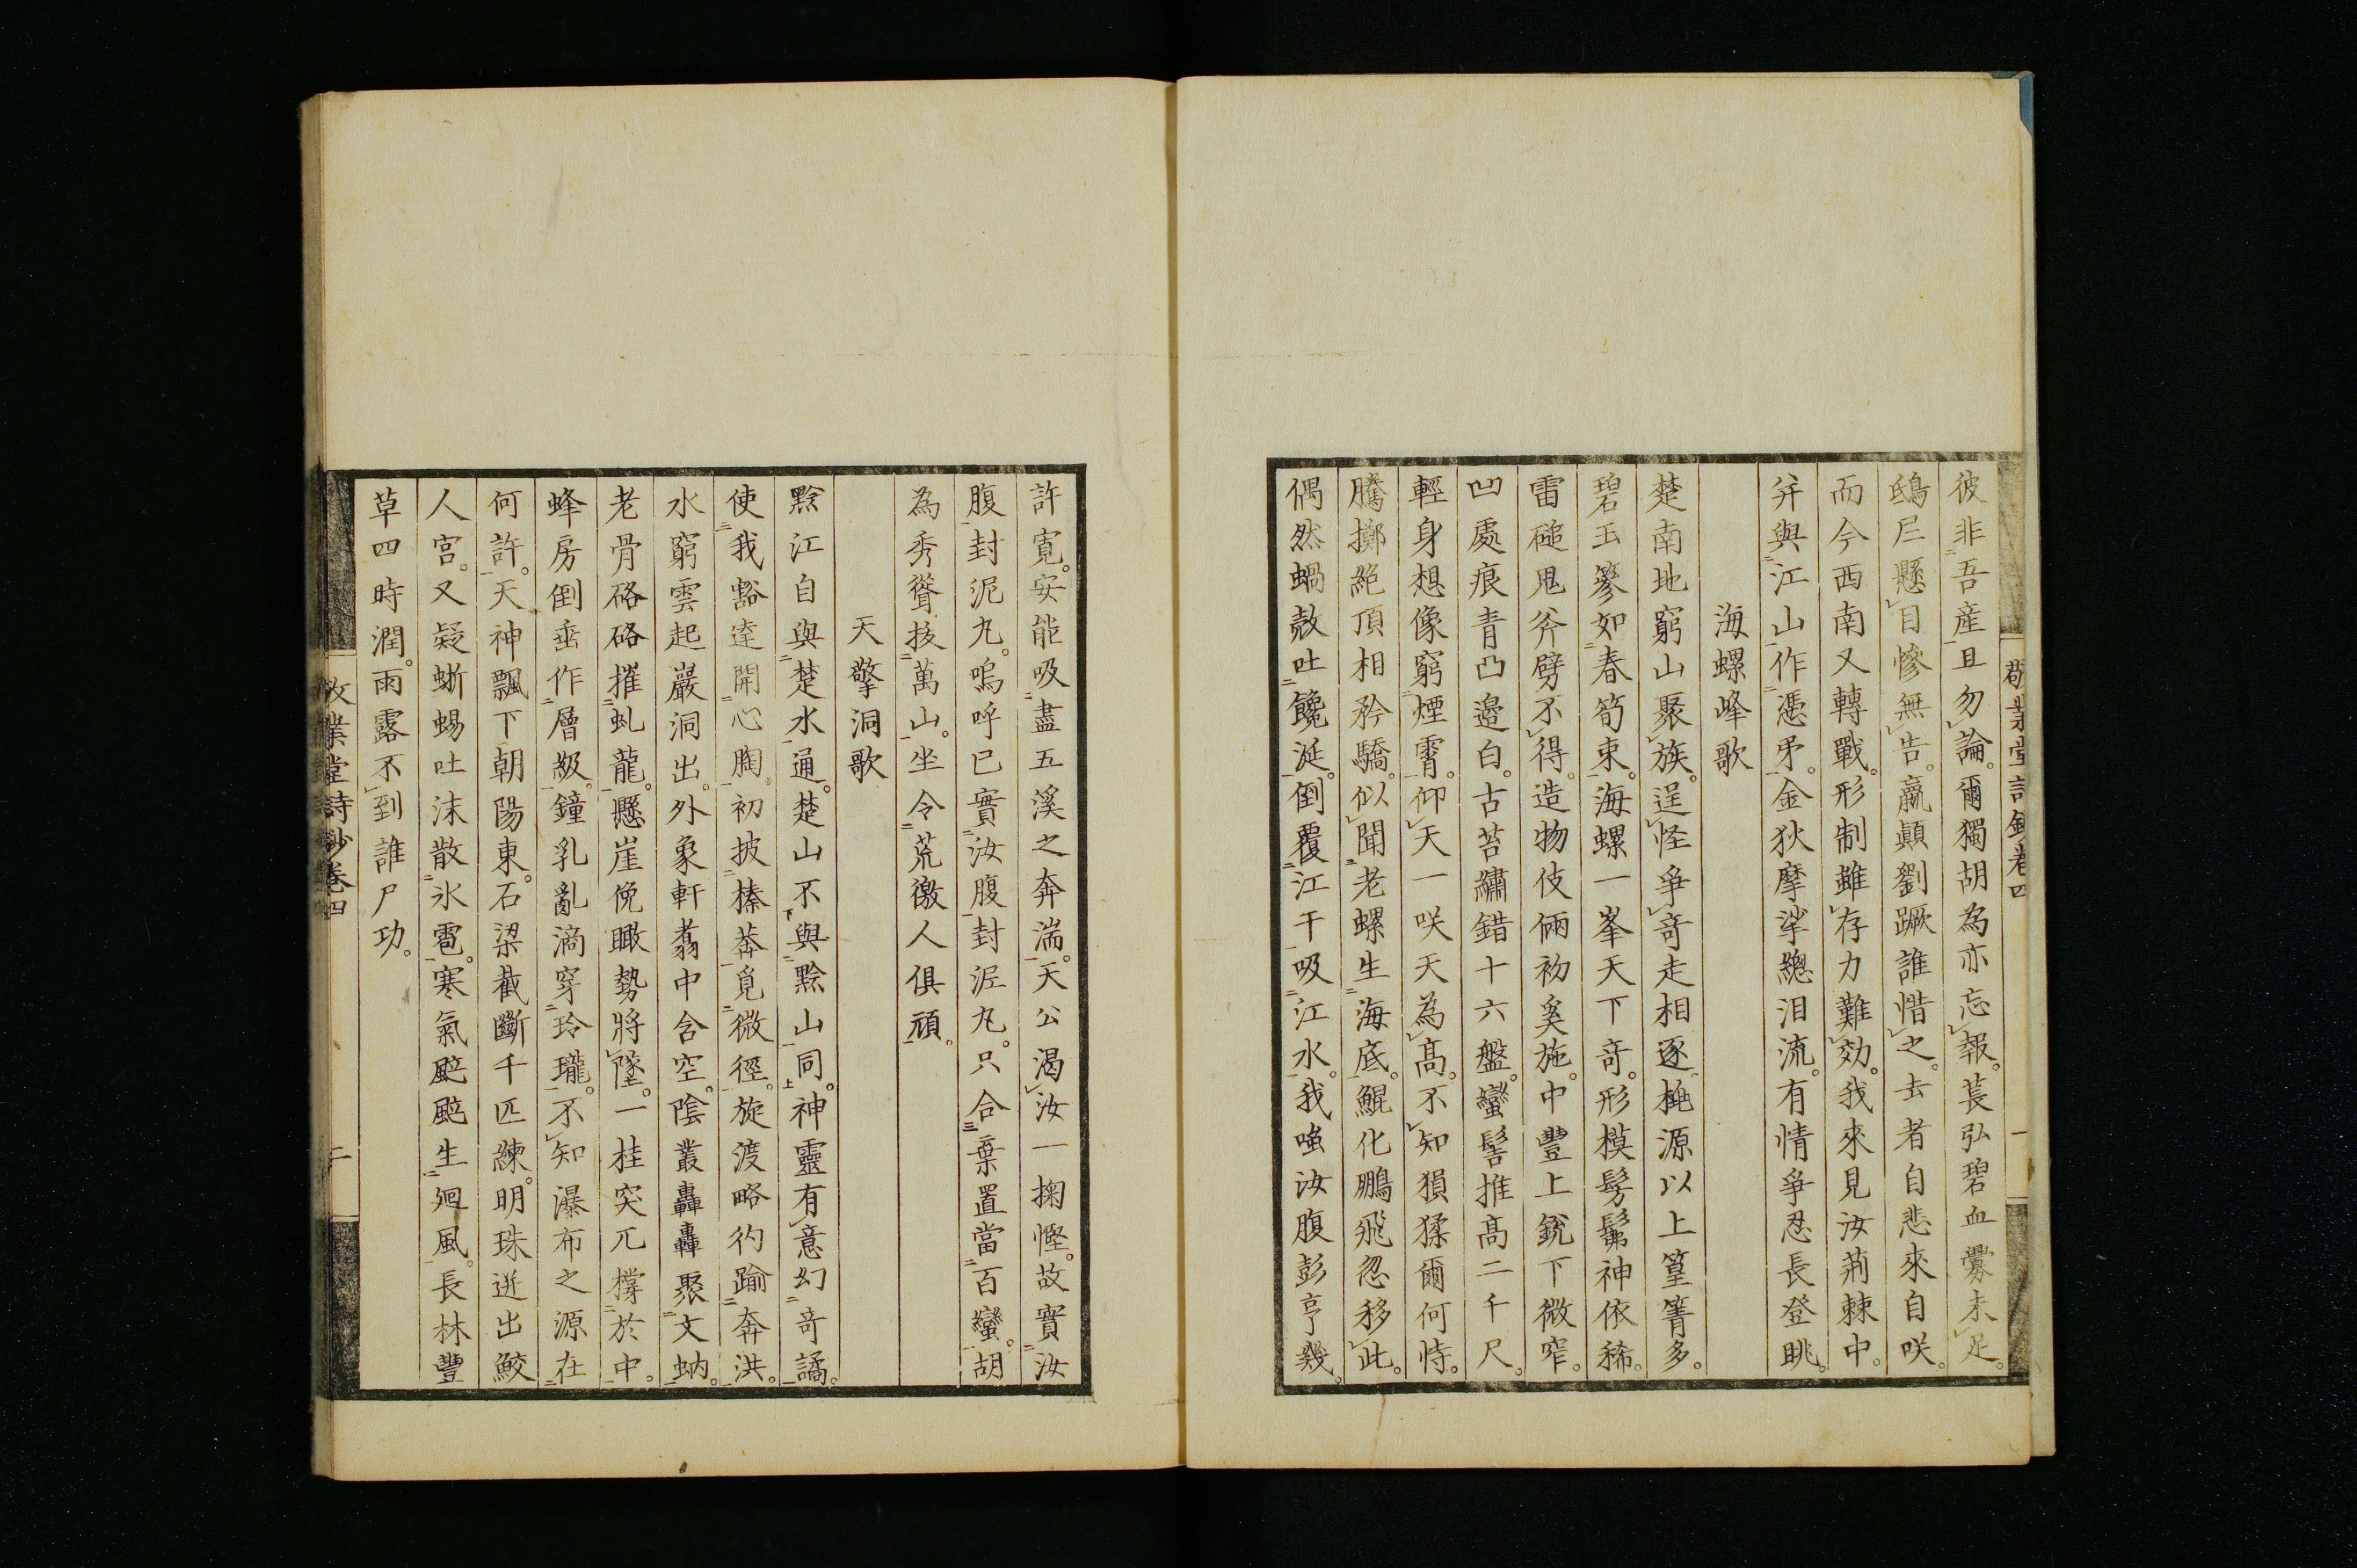 彼非吾産且勿論。爾獨胡為亦忘報。萇弘碧血釁未足。
鴟尼懸目慘無告。嬴顛劉蹶誰惜之。去者自悲來自咲。
而今西南又轉戰。形制雖存力難効。我來見汝荊棘中。
并與江山作憑弔。金狄摩挲總淚流。有情爭忍長登眺。
海螺峰歌
楚南地窮山聚族。逞怪爭奇走相逐。桃源以上篁箐多。
碧玉篸如春筍束。海螺一峯天下奇。形模髣髴神依稀。
雷槌鬼斧劈不得。造物伎倆初奚施。中豐上銳下微窄。
凹處痕青凸邊白。古苔繡錯十六盤。蠻髻推高二千尺。
輕身想像窮煙霄。仰天一咲天為高。不知猿猱爾何恃。
騰擲絕頂相矜驕。似聞老螺生海底。鯤化鵬飛忽移此。
偶然蝸殼吐饞涎。倒覆江干吸江水。我嗤汝腹彭亨幾
許寬。安能吸盡五溪之奔湍。天公渴汝一掬慳。故實汝
腹封泥丸。嗚呼已實汝腹封泥丸。只合棄置當百蠻。胡
為秀聳拔萬山。坐令荒徼人俱頑。
天擎洞歌
黔江自與楚水通。楚山不與黔山同。神靈有意幻奇譎。
使我豁達開心胸。初披榛莽覓微徑。旋渡略彴踰奔洪。
水窮雲起巖洞出。外象軒翥中含空。陰叢轟轟聚文蚋。
老骨硌硌摧虬龍。懸崖俛瞰勢將墜。一柱突兀撐於中。
蜂房倒垂作層級。鐘乳亂滴穿玲瓏。不知瀑布之源在
何許。天神飄下朝陽東。石梁截斷千匹練。明珠迸出鮫
人宮。又疑蜥蜴吐沫散氷雹。寒氣颭颭生廻風。長林豐
草四時潤。雨露不到誰尸功。
敬業堂詩鈔卷四 一
敬業堂詩鈔卷四 二